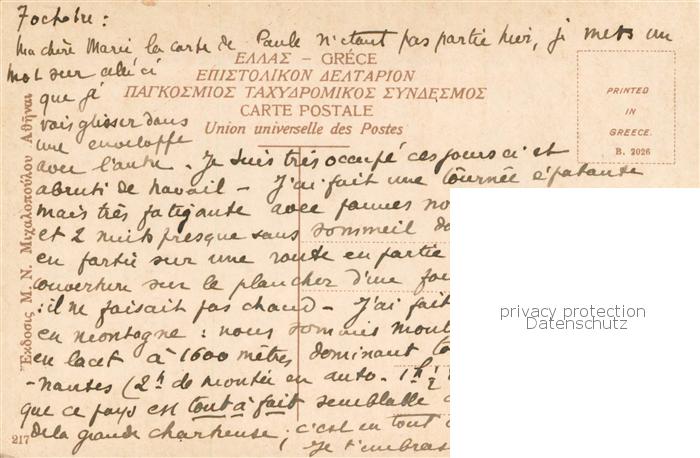 7 octobre :
Ma chère Marie la carte de Paule n'étant pas partie hier, je mets un
mot sur celle ci
que je
vais glisser dans
une enveloppe
avec l'autre. Je suis très occupé ces jours ci et
abruti de travail - J'ai fait une tournée épatante
mais très fatigante avec pannes
et 2 nuits presque sans sommeil
en partie sur une route en partie
couverture sur le plancher d'une
: il ne faisait pas chaud - J'ai fait
en montagne : nous sommes
en lacet à 1600 mètres dominant
-nantes (2h de montée en auto. 1h 1/2
que ce pays est tout à fait semblable
de la grande chartreuse ; c'est en tout
Je t'embras
ΕΛΛΑΣ – GRÉCE
ΕΠΙΣΤΟΛΙΚΟΝ ΔΕΛΤΑΡΙΟΝ
ΠΑΓΚΟΣΜΙΟΣ ΤΑΧΥΔΡΟΜΙΚΟΣ ΣΥΝΔΕΣΜΟΣ
CARTE POSTALE
Union universelle des Postes
PRINTED
IN
GREECE.
B. 2026
Ἔκδοσις Μ. Ν. Μιχαλοπούλου Ἀθῆναι
217
privacy protection
Datenschutz